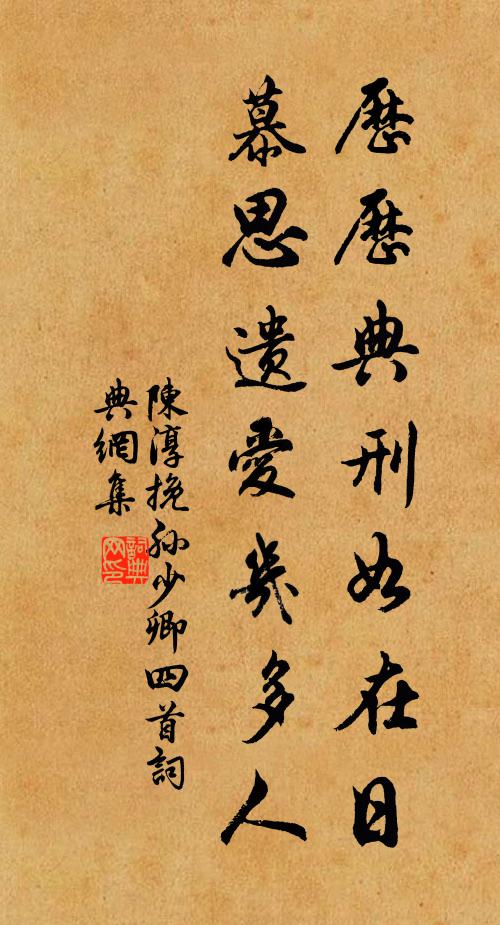 歷歷典刑如在日
慕思遺愛幾多人
陳淳挽孫少卿四首詞
典網集
詞典
网印